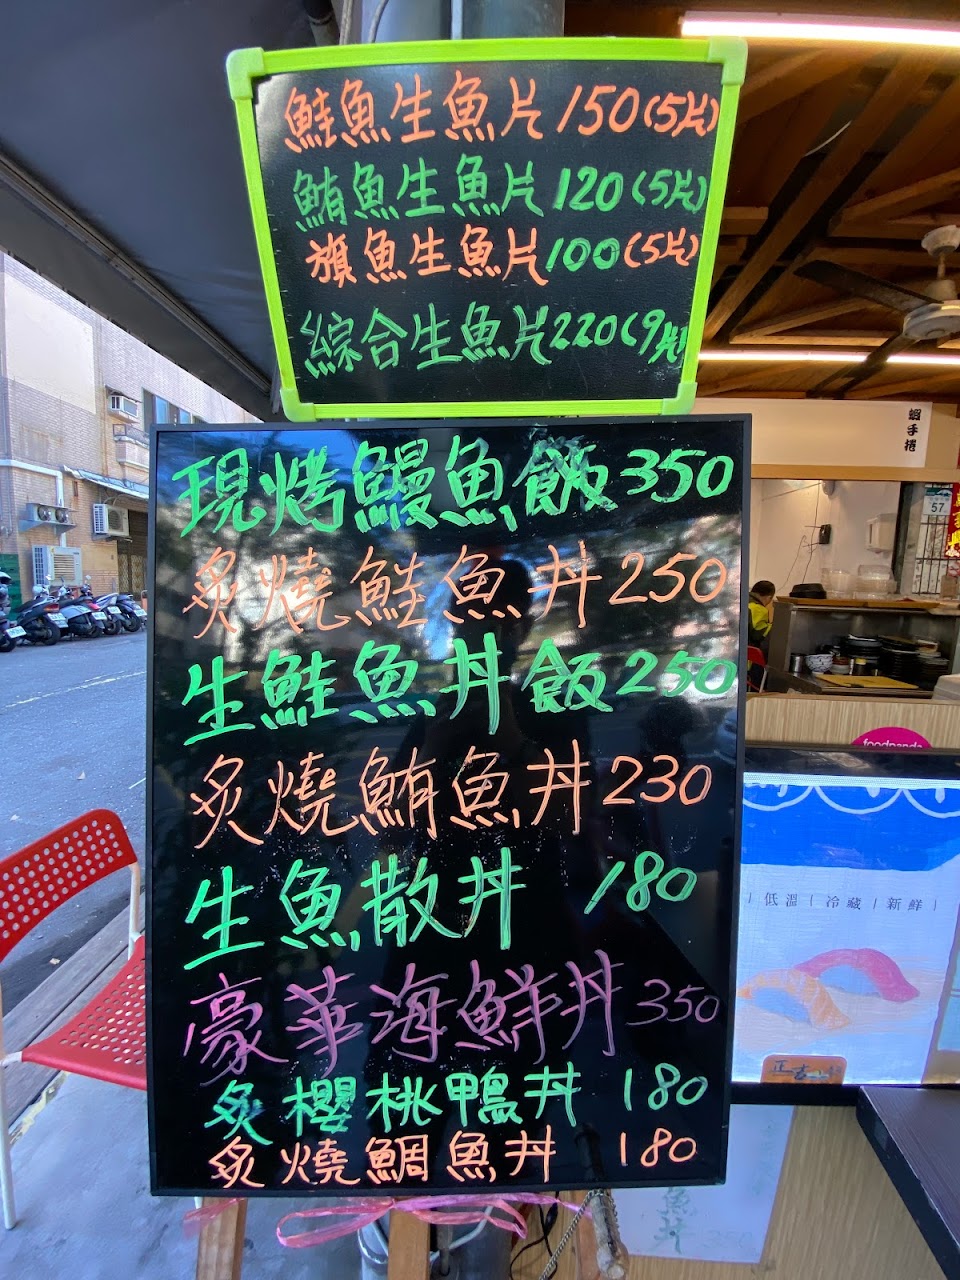 鮭魚生魚片150(5片)
鮪魚生魚片120(5片)
旗魚生魚片100(5片)
綜合生魚片220(9片)
現烤鰻魚飯350
炙燒鮭魚丼250
生鮭魚丼飯250
炙燒鮪魚丼230
生魚散丼 180
豪華海鮮丼350
炙櫻桃鴨丼 180
炙燒鯛魚丼 180
蝦手捲
57
foodpanda
低溫 | 冷藏 | 新鮮 |
魚丼